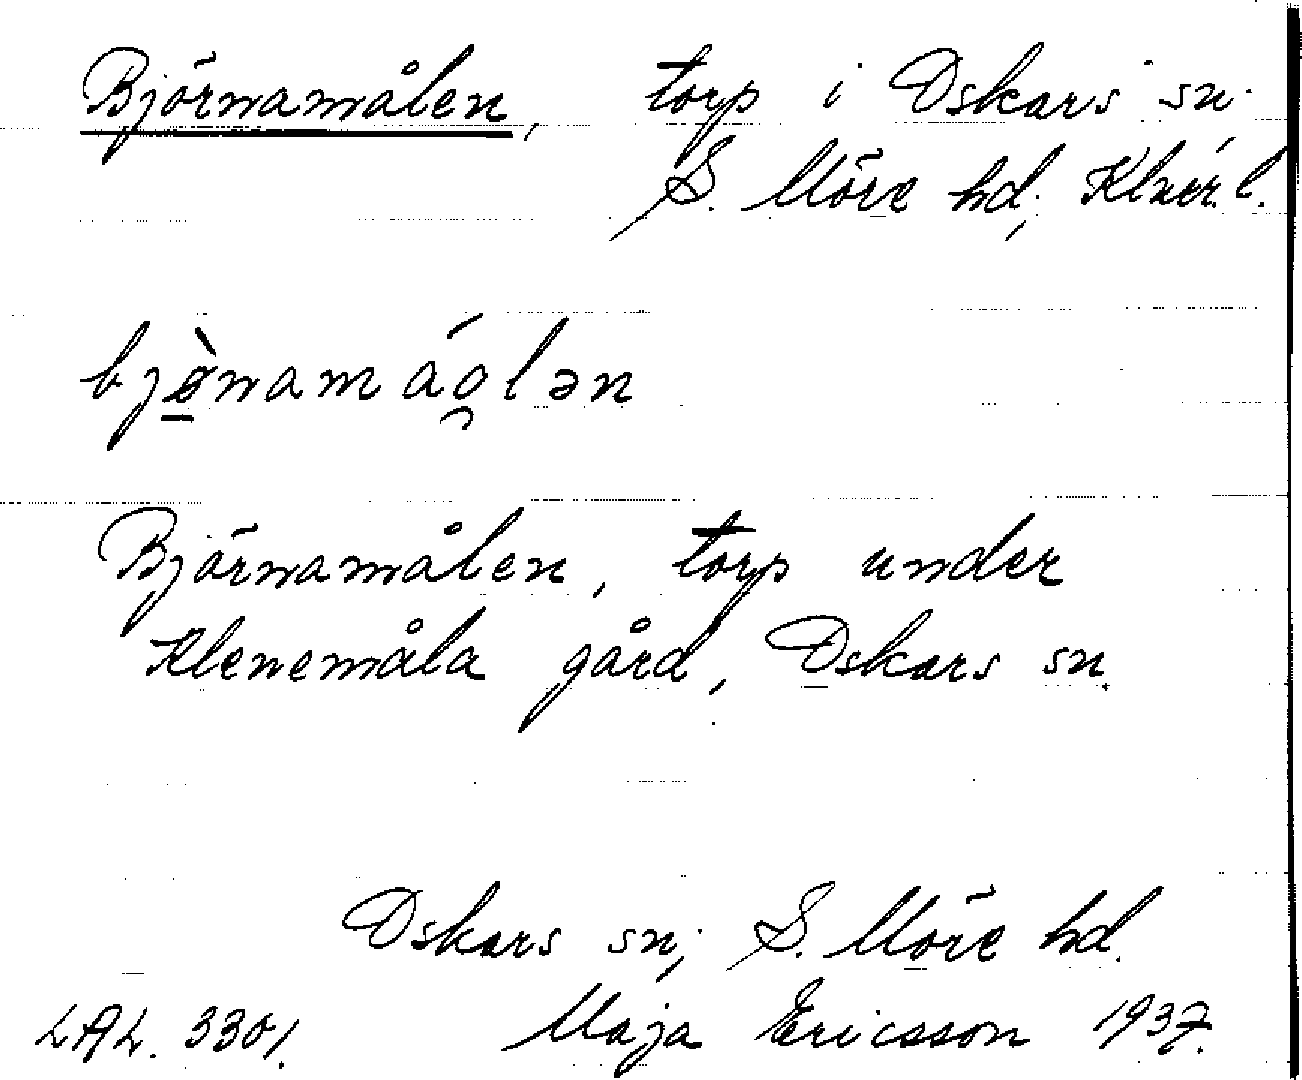 Björnamålen, torp i Oskars sn.
S. Möre hd; Klmr. l.
bjø̠̀namáo̯lən
Björnamålen, torp under
Klenemåla gård, Oskars sn.
Oskars sn; S. Möre hd.
LAL. 3301. Maja Ericsson 1937.